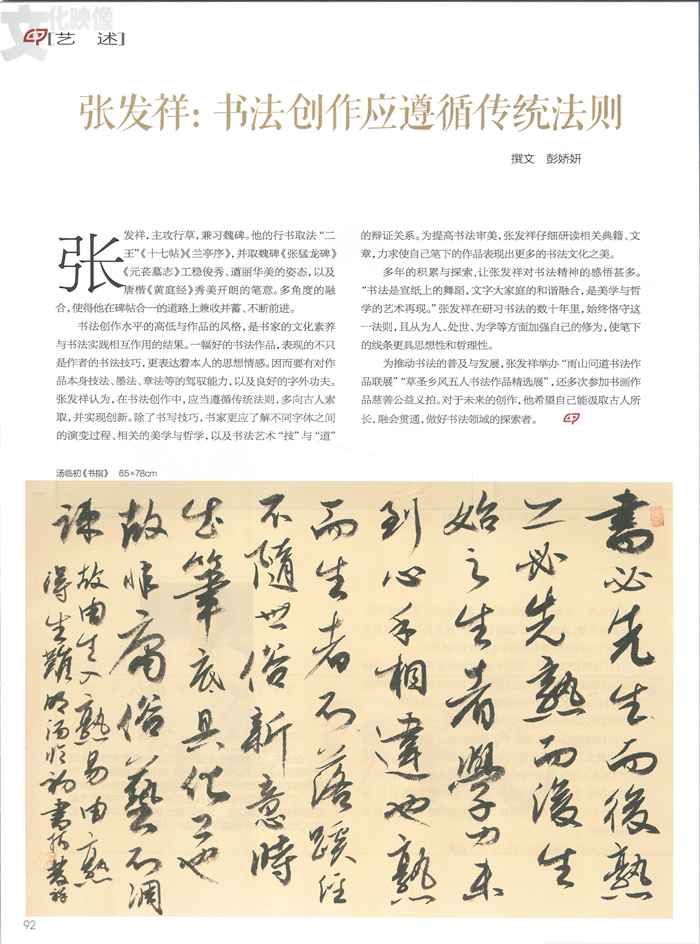 文化映像
[艺 述]
张发祥：书法创作应遵循传统法则
撰文 彭娇妍
张发祥，主攻行草，兼习魏碑。他的行书取法“二
王”《十七帖》《兰亭序》，并取魏碑《张猛龙碑》
《元苌墓志》工稳俊秀、遒丽华美的姿态，以及
唐楷《黄庭经》秀美开朗的笔意。多角度的融
合，使得他在碑帖合一的道路上兼收并蓄、不断前进。
书法创作水平的高低与作品的风格，是书家的文化素养
与书法实践相互作用的结果。一幅好的书法作品，表现的不只
是作者的书法技巧，更表达着本人的思想情感。因而要有对作
品本身技法、墨法、章法等的驾驭能力，以及良好的字外功夫。
张发祥认为，在书法创作中，应当遵循传统法则，多向古人索
取，并实现创新。除了书写技巧，书家更应了解不同字体之间
的演变过程、相关的美学与哲学，以及书法艺术“技”与“道”
的辩证关系。为提高书法审美，张发祥仔细研读相关典籍、文
章，力求使自己笔下的作品表现出更多的书法文化之美。
多年的积累与探索，让张发祥对书法精神的感悟甚多。
“书法是宣纸上的舞蹈，文字大家庭的和谐融合，是美学与哲
学的艺术再现。”张发祥在研习书法的数十年里，始终恪守这
一法则，且从为人、处世、为学等方面加强自己的修为，使笔下
的线条更具思想性和哲理性。
为推动书法的普及与发展，张发祥举办“雨山问道书法作
品联展”“草圣乡风五人书法作品精选展”，还多次参加书画作
品慈善公益义拍。对于未来的创作，他希望自己能汲取古人所
长，融会贯通，做好书法领域的探索者。
汤临初《书指》 65×78cm
書必先生而後熟
亡必先熟而後生
始之生者學力未
到心手相違也熟
而生者不落蹊徑
不隨世俗新意時
出筆底具化工也
故非庸俗藝不凋
疎故由生入熟易由熟
得生難明湯臨初書指 發祥
92